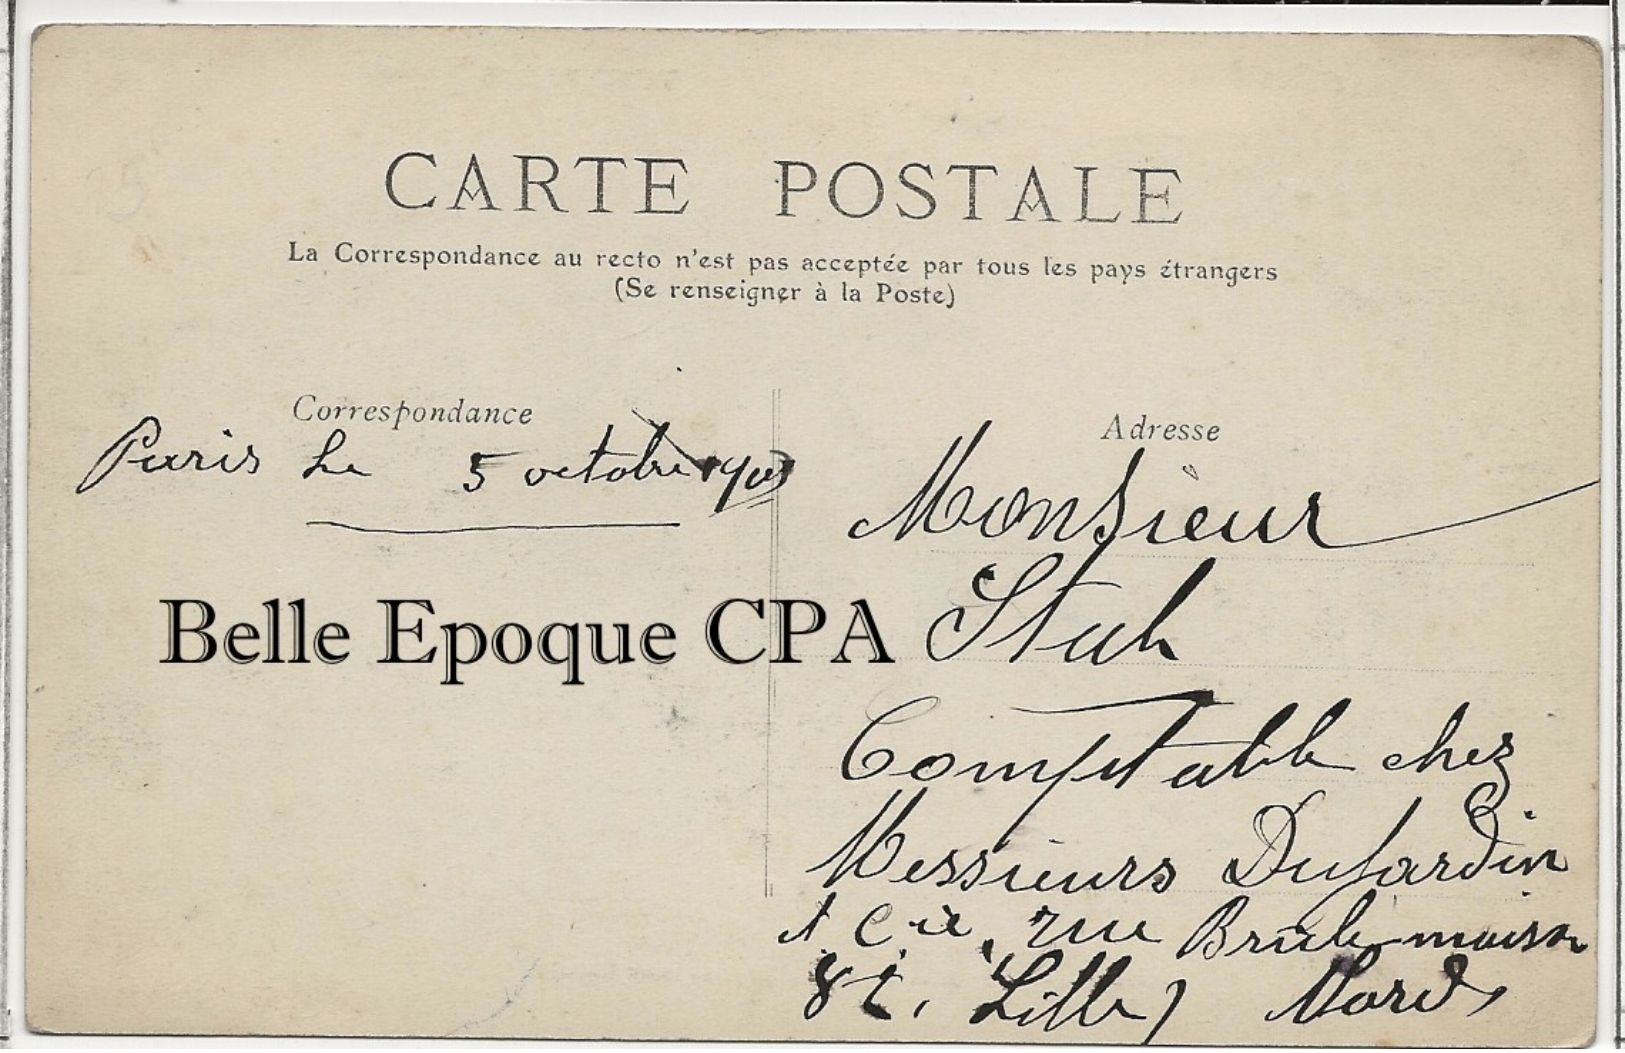 CARTE POSTALE
La Correspondance au recto n'est pas acceptée par tous les pays étrangers
(Se renseigner à la Poste)
Correspondance
Adresse
Paris Le 5 octobre
Monsieur
Belle Epoque CPA
Stuh
Comptable chez
Messieurs Dujardin
et Cie, rue Brule-maison
Lille, Nord